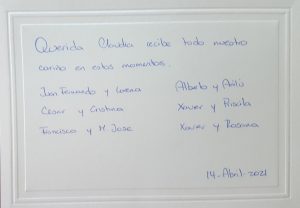 Querida Claudia recibe todo nuestro
cariño en estos momentos.
Juan Fernando y Lorena
Alberto y Anlú
César y Cristina
Xavier y Priscila
Francisco y M. Jose
Xavier y Rosanna
14-Abril-2021